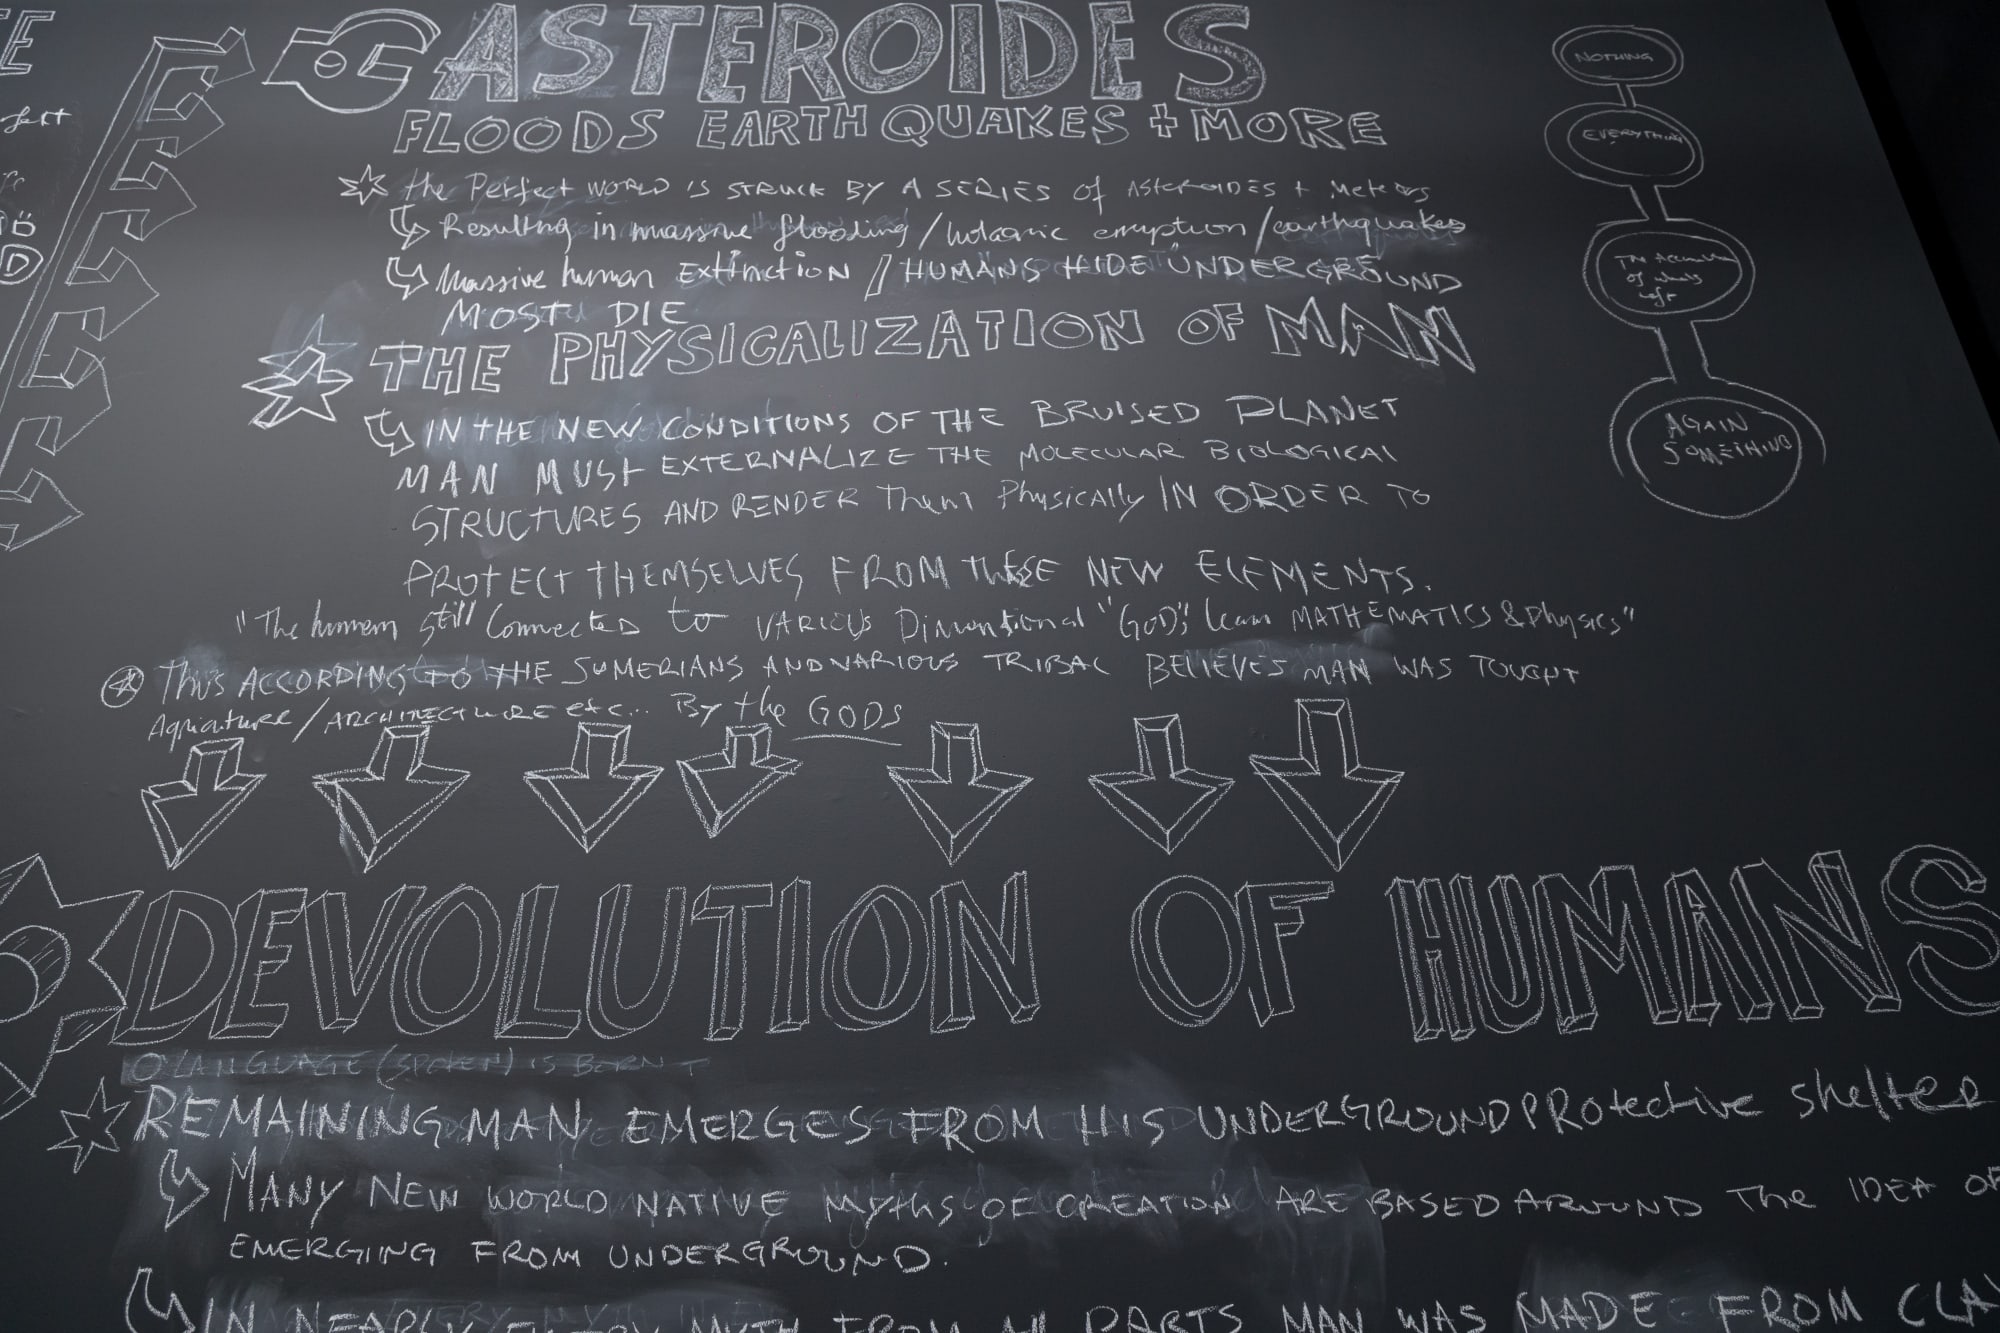 ASTEROIDES
FLOODS EARTHQUAKES + MORE
the Perfect WORLD IS STRUCK BY A SERIES Of ASTEROIDES + Meteors
Resulting in massive flooding / volcanic erruption / earthquakes
Massive human EXtinCTION / HUMANS HIDE UNDERGROUND
MOST DIE
THE PHYSICALIZATION OF MAN
IN tHE NEW CONDITIONS OF THE BRUISED PLANET
MAN MUSt EXTERNALIZE THE MOLECULAR BIOLOGICAL
STRUCTURES AND RENDER Them Physically IN ORDER TO
PROTECT THEMSELVES FROM thESE NEW ELEMENTS.
"The humans still Connected to VARIOUS Dimentional "GOD's" learn MATHEMATICS & Physics"
Thus ACCORDING TO tHE SUMERIANS AND VARIOUS TRIBAL BELIEVES MAN WAS TOUGHT
Agriculture / ARCHITECTURE etc... By the GODS
DEVOLUTION OF HUMANS
LANGUAGE (SPOKEN) IS BORN
REMAINING MAN EMERGES FROM HIS UNDERGROUND PROtective shelter
MANY NEW WORLD NATIVE MYths OF CREATION ARE BASED AROUND The IDEA OF
EMERGING FROM UNDERGROUND.
IN NEARLY EVERY MYTH FROM All PARTS MAN WAS MADE FROM CLA
NOTHING
EVERYTHING
OF whats
left
AGAIN
SOMETHING